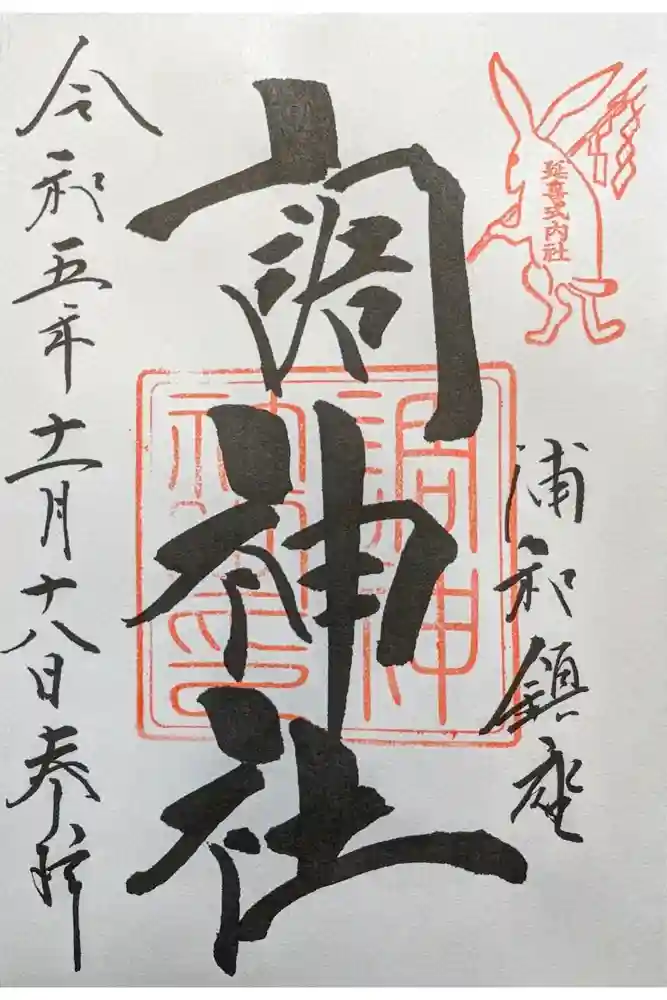 延喜式内社
浦和鎮座
調神社
調神
社之印
令和五年十一月十八日奉拝